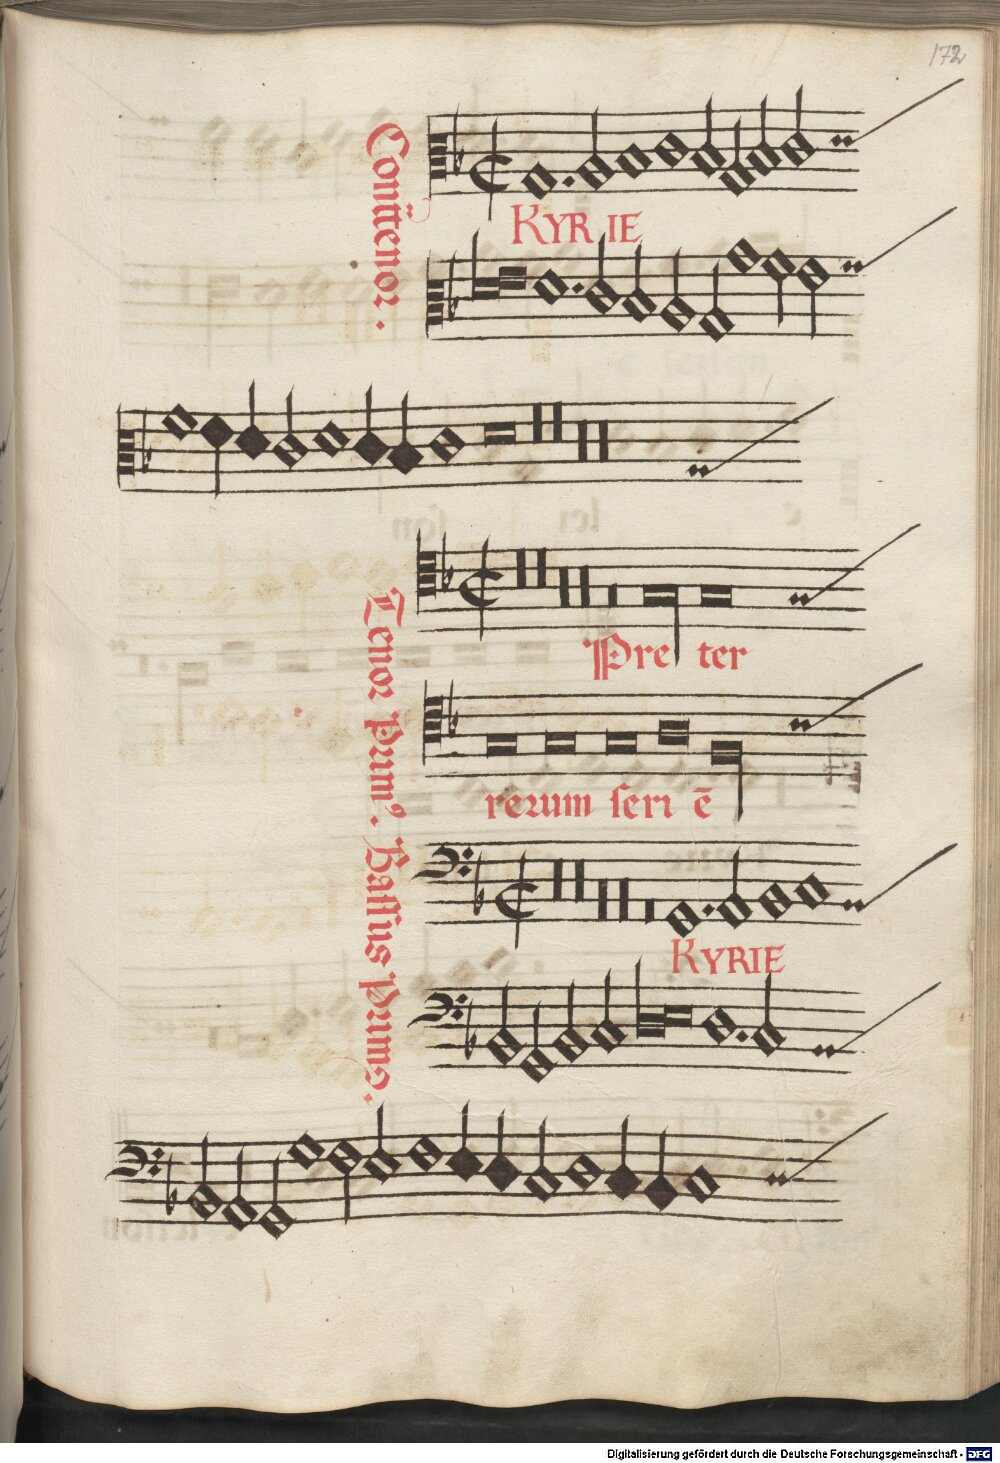 172
Contratenor.
KYRIE
Tenor Primus.
Pre ter
rerum seri ē
Bassus Primus.
KYRIE
Digitalisierung gefördert durch die Deutsche Forschungsgemeinschaft - DFG